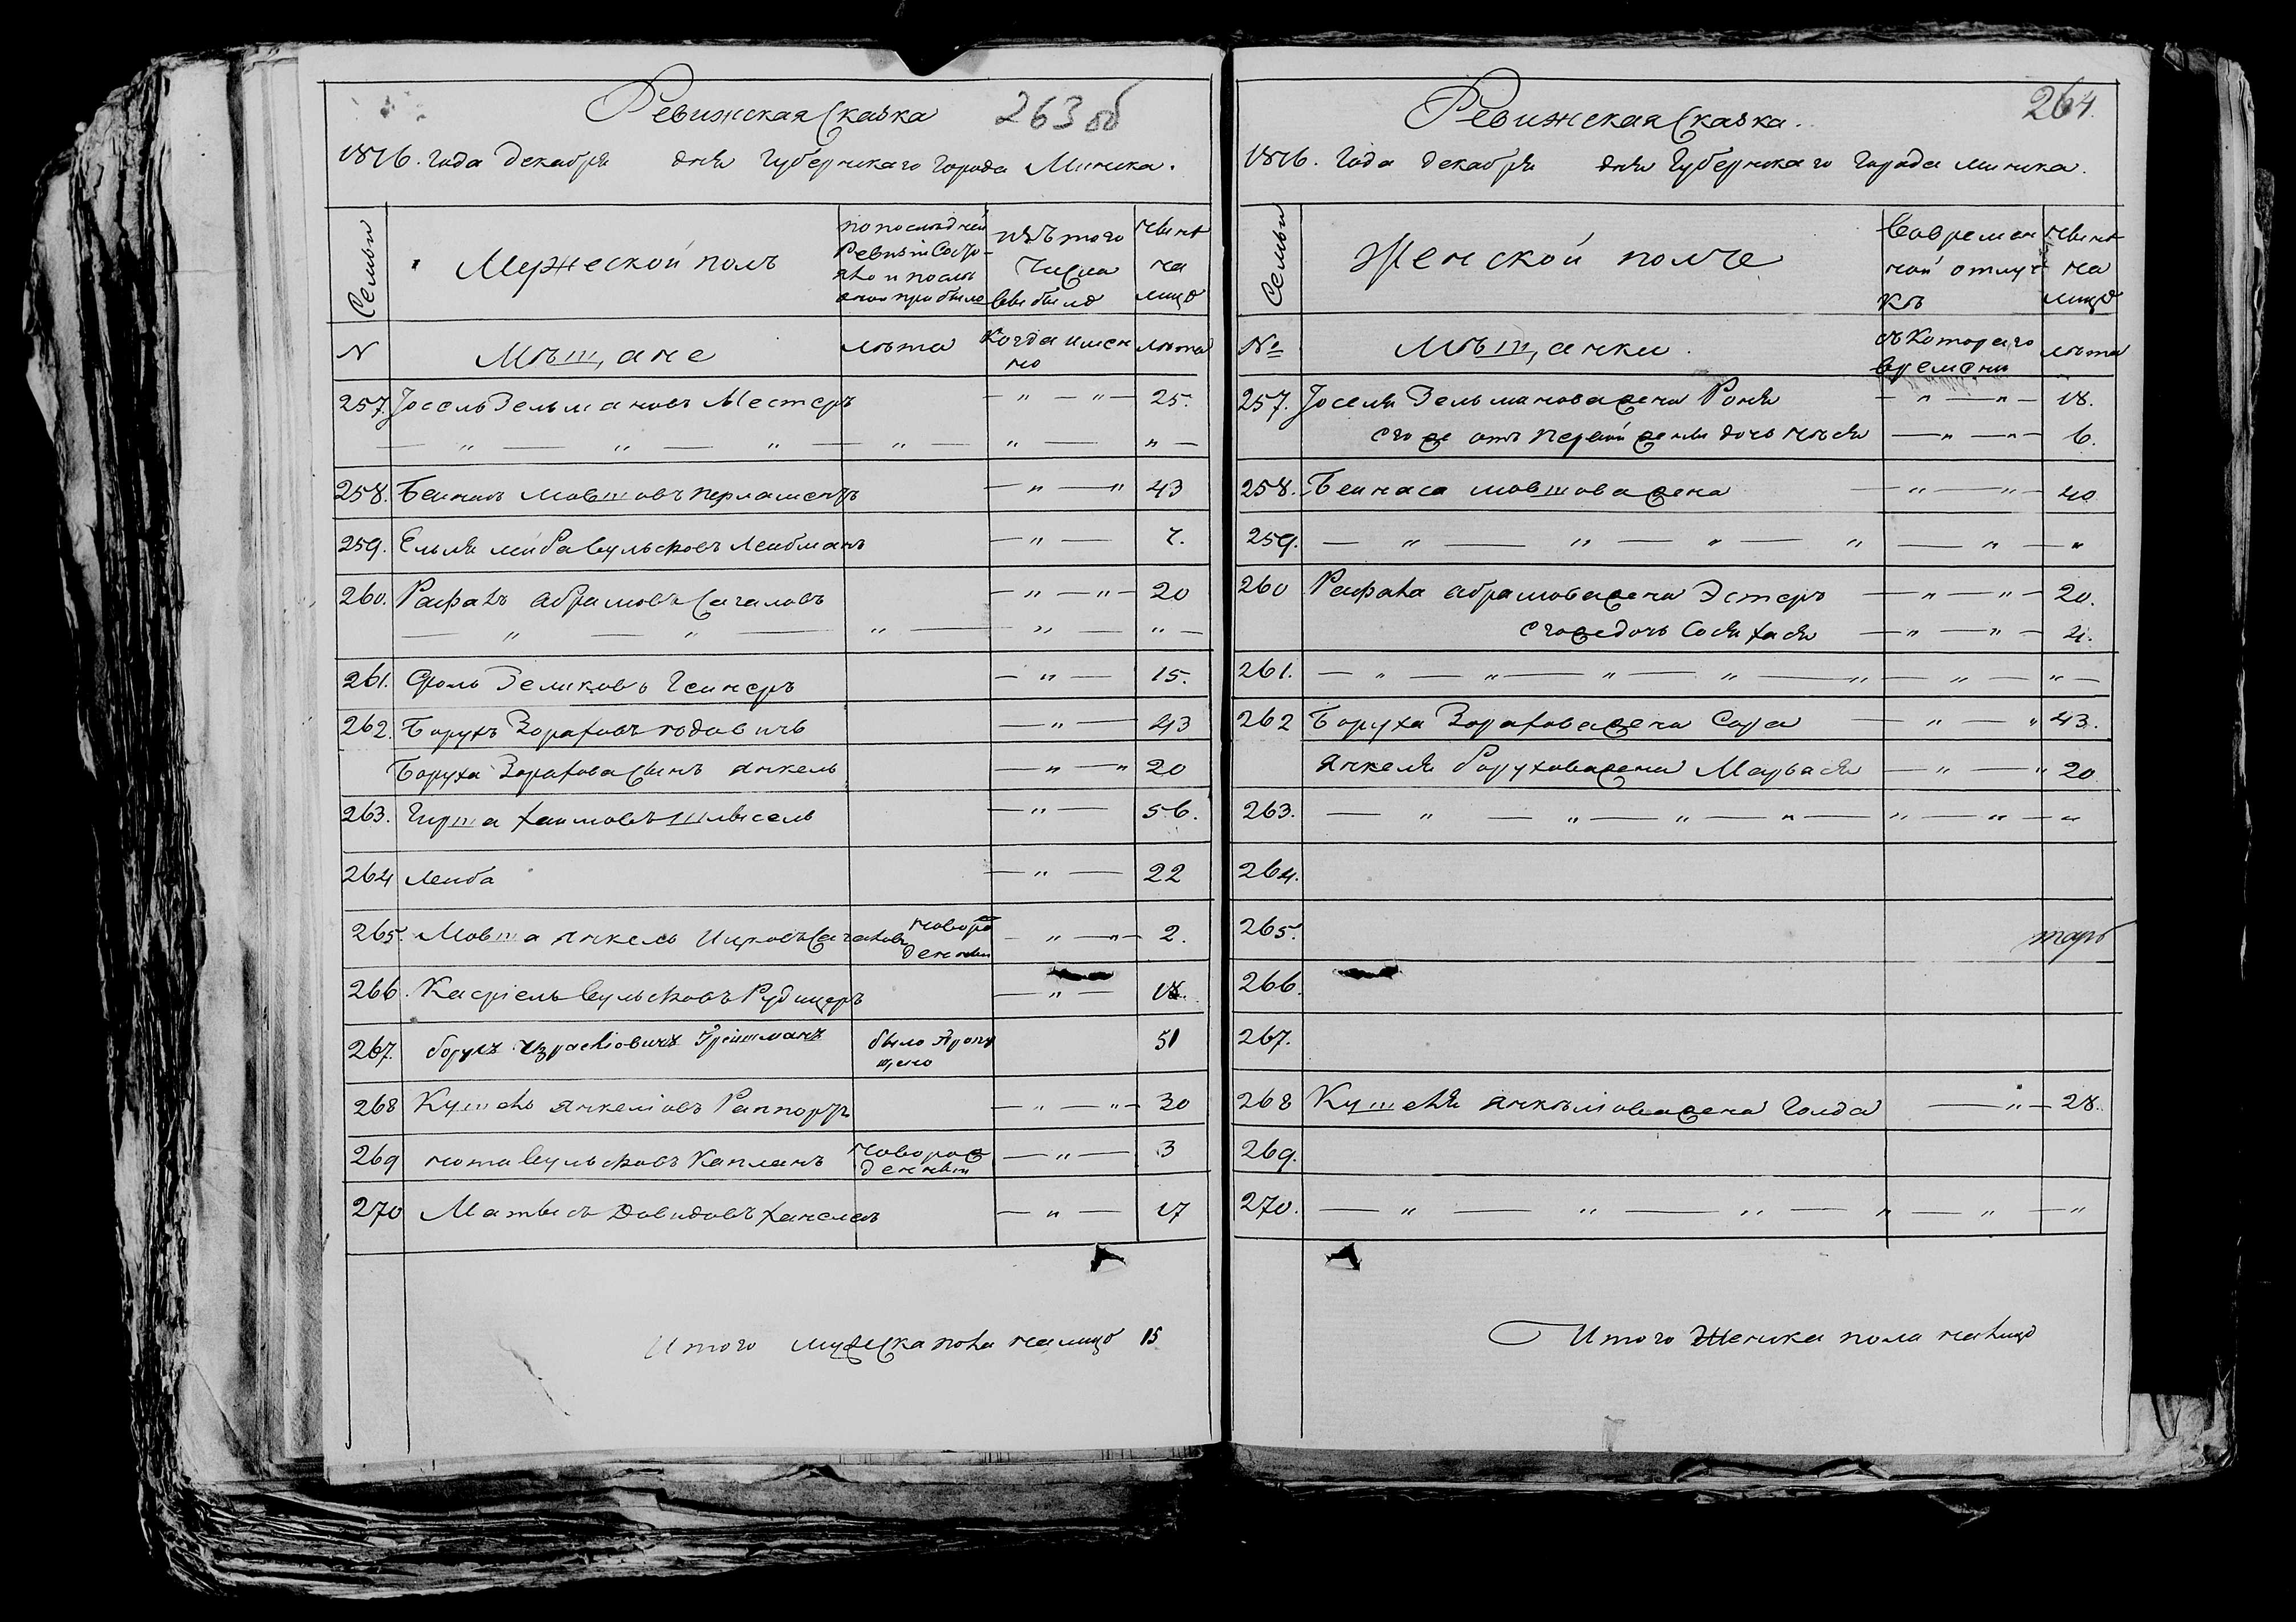 Ревижская Сказка 263 об
1816. года Декабря дня Губернскаго Города Минска.
Семьи
Мужеской полъ
по последней Ревизiи Состояло и после оной прибыло
изъ того числа выбыло
ныне на лицо
N
Мѣщане
лѣта
Когда именно
лѣта
257. Iосель Зельмановъ Местеръ — " — " — 25.
— " — " — " — " — " — " —
258. Беинасъ Мовшовъ Перламентъ — " — " 43
259. Ельля Лейба Вульфовъ Леибманъ — " — 7.
260. Рафалъ Абрамовъ Сагаловъ — " — " — 20
— " — " — " — " — " —
261. Фроль Зеликовъ Геинеръ — " — 15.
262. Борухъ Зораховъ Юдовичъ — " — 43
Боруха Зорахова Сынъ Янкель — " — " 20
263. Гирша Хаимовъ — " — 56.
264 Леиба — " — 22
265. Мовша Янкель Ицковъ Сагаловъ новорожденный — " — " — 2.
266. Касрiель Вульфовъ Рубицеръ — " — 18.
267. Борухъ Израелiовичъ было пропущено 51
268 Кушель Янкелiовъ Раппортъ — " — " — 30
269 Нота Вульфовъ Капланъ новорожденный — " — 3
270 Матысъ Довидовъ — " — 17
Итого мужеска пола на лицо 15
Ревижская Сказка. 264.
1816. Года Декабря дня Губернскаго Города Минска.
Семьи
Женской полъ
Во временной отлучкѣ
ныне на лицо
№
Мѣщанки.
съ Котораго времени
лѣта
257. Iоселя Зельманова жена Роня — " — " — 18.
его же отъ первой жены дочь Нѣся — " — " — 6.
258. Беинаса Мовшова жена — " — " — 40
259. — " — " — " — " — " — "
260 Рафала Абрамова жена Эстеръ — " — " — 20.
его же дочь Сося Хася — " — " — 4.
261. — " — " — " — " — " — " — " —
262 Боруха Зорахова жена Сора — " — " 43.
Янкеля Борухова жена Марьяся — " — " 20
263. — " — " — " — " — " — " — "
264.
265.
266.
267.
268 Кушеля Янкелiова жена Голда — " — 28.
269.
270. — " — " — " — " — " — "
Итого Женска пола на лицо